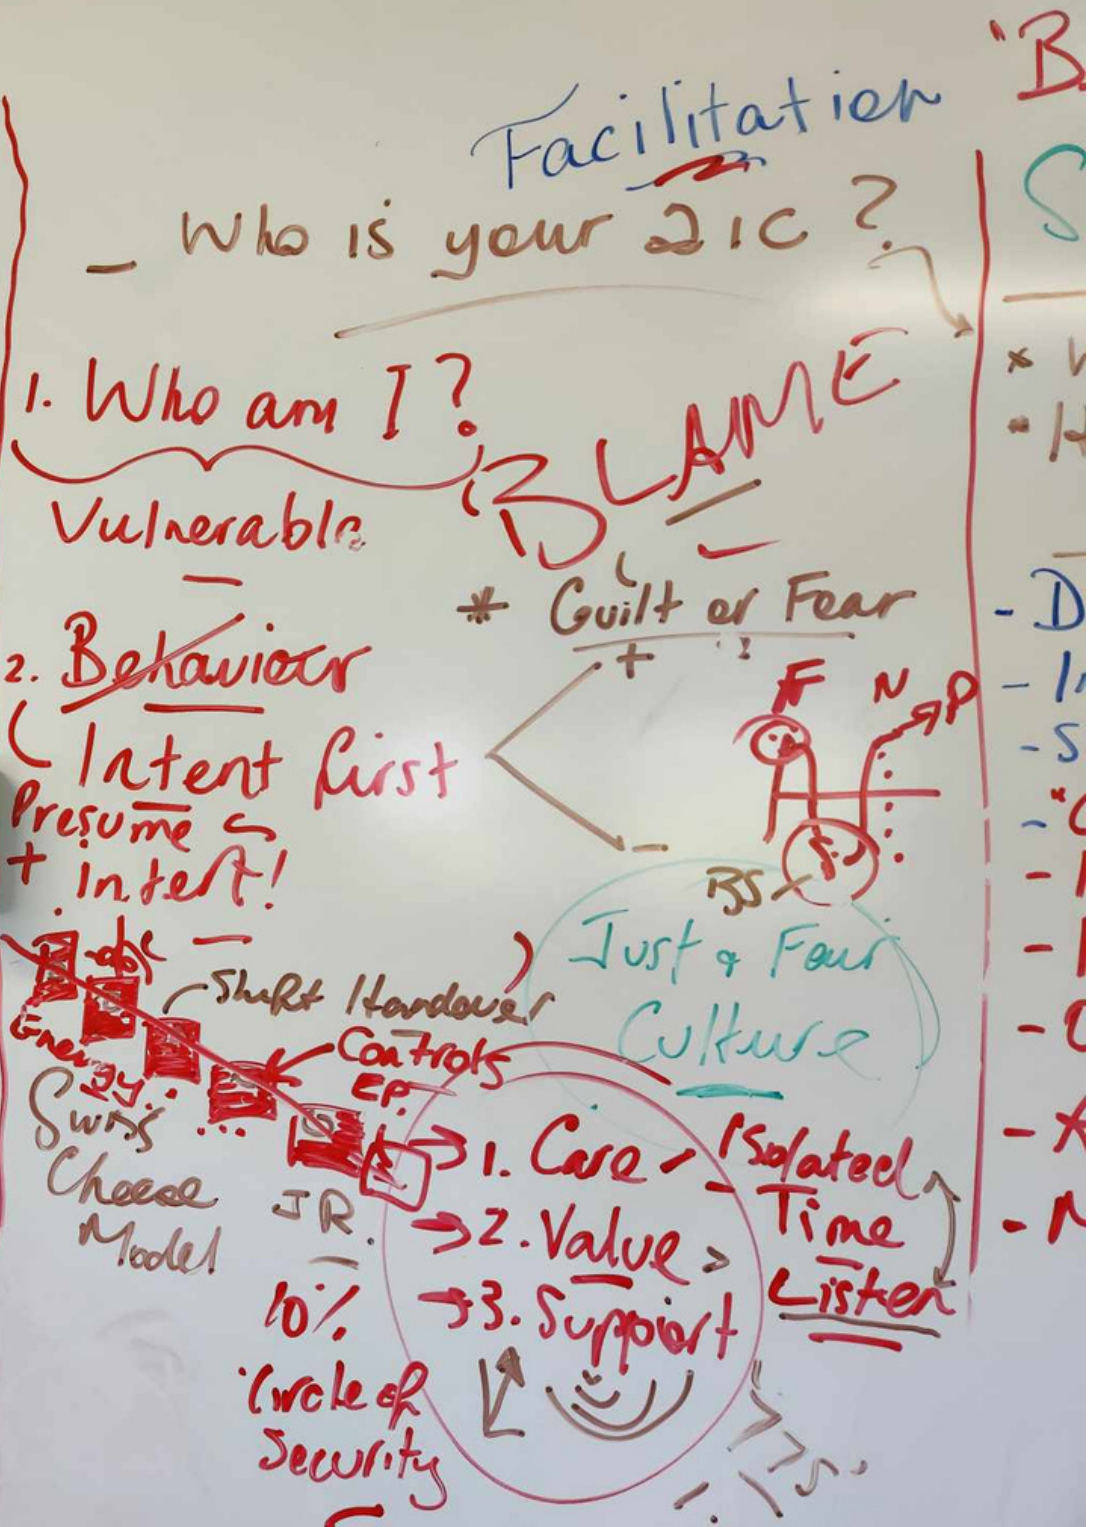 Facilitation
- Who is your 2IC ?
1. Who am I?
Vulnerable
BLAME
* Guilt or Fear
+
2. Behaviour
Intent first
Presume
+ intent!
-
F N P
BS
Just & Fair
Culture
Shift Handover
Energy
Controls
EP.
Swiss
Cheese
Model
JR.
10%
Circle of
Security
→ 1. Care - Isolated
Time
→ 2. Value >
Listen
→ 3. Support
"B
- D
- S